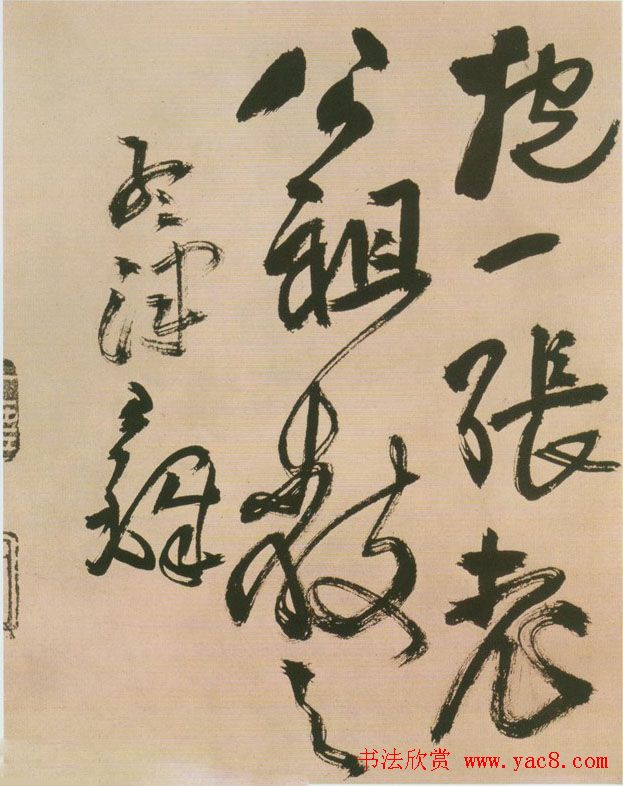 抱一張老
公祖教之
孟津王鐸
书法欣赏 www.yac8.com